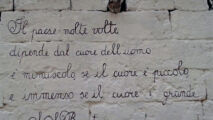 Il paese molte volte
dipende dal cuore dell'uomo
è minuscolo se il cuore è piccolo
e immenso se il cuore è grande